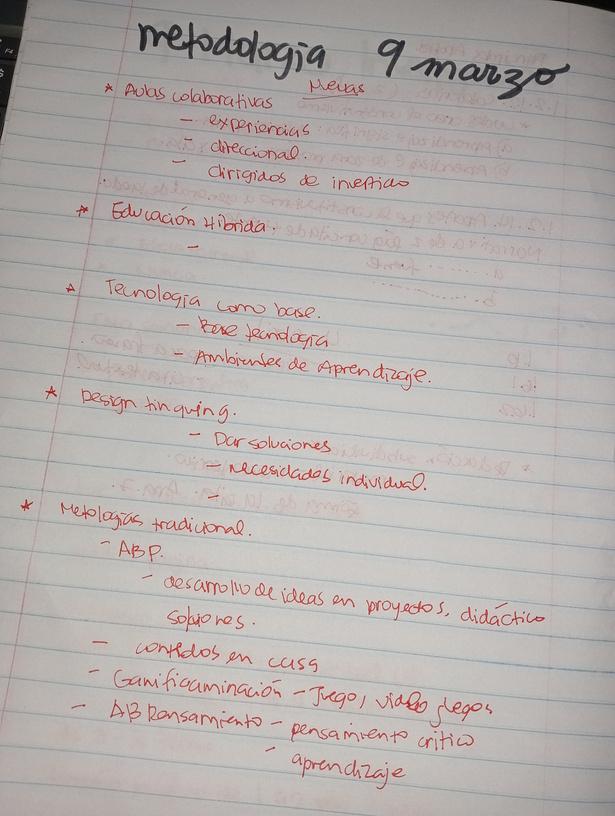 metodologia 9 marzo
Nuevas
* Aulas colaborativas
- experiencias
- direccional.
- dirigidos de invertido
* Educación Híbrida.
-
* Tecnología como base.
- Base tecnología
- Ambientes de Aprendizaje.
* Design tinquing.
- Dar soluciones
- necesidades individual.
-
* Metologías tradicional.
- ABP.
- desarrollo de ideas en proyectos, didáctico
soluiones.
- contedos en casa
- Ganificaminación - Juego, video juegos
- AB Pensamiento - pensamiento critico
- aprendizaje